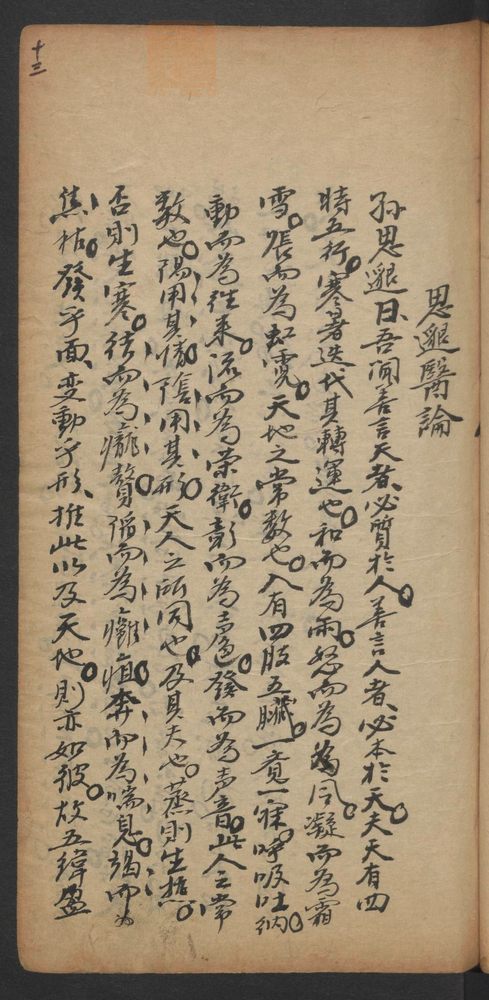 十三
思邈醫論
孙思邈曰、吾闻善言天者、必質於人。善言人者、必本於天。夫天有四
時五行。寒暑迭代、其轉運也。和而為雨。怒而為風。凝而為霜
雪。張而為虹霓。天地之常数也。人有四肢五臓。一覚一寐。呼吸吐纳。
動而為往来。流而為荣衛。彰而為氣色。發而為声音。此人之常
数也。陽用其精。陰用其形。天人之所同也。及其失也。蒸則生热。
否則生寒。结而為瘤贅。陷而為癰疽。奔而為喘息。竭而为
焦枯。發乎面、变動乎形、推此以及天地。則亦如彼。故五緯盈